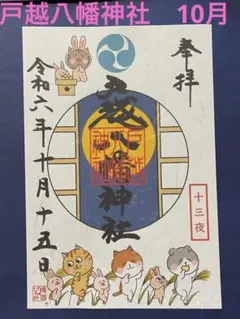 戸越八幡神社　10月
奉拝
戸越八幡神社
令和六年十月十五日
十三夜